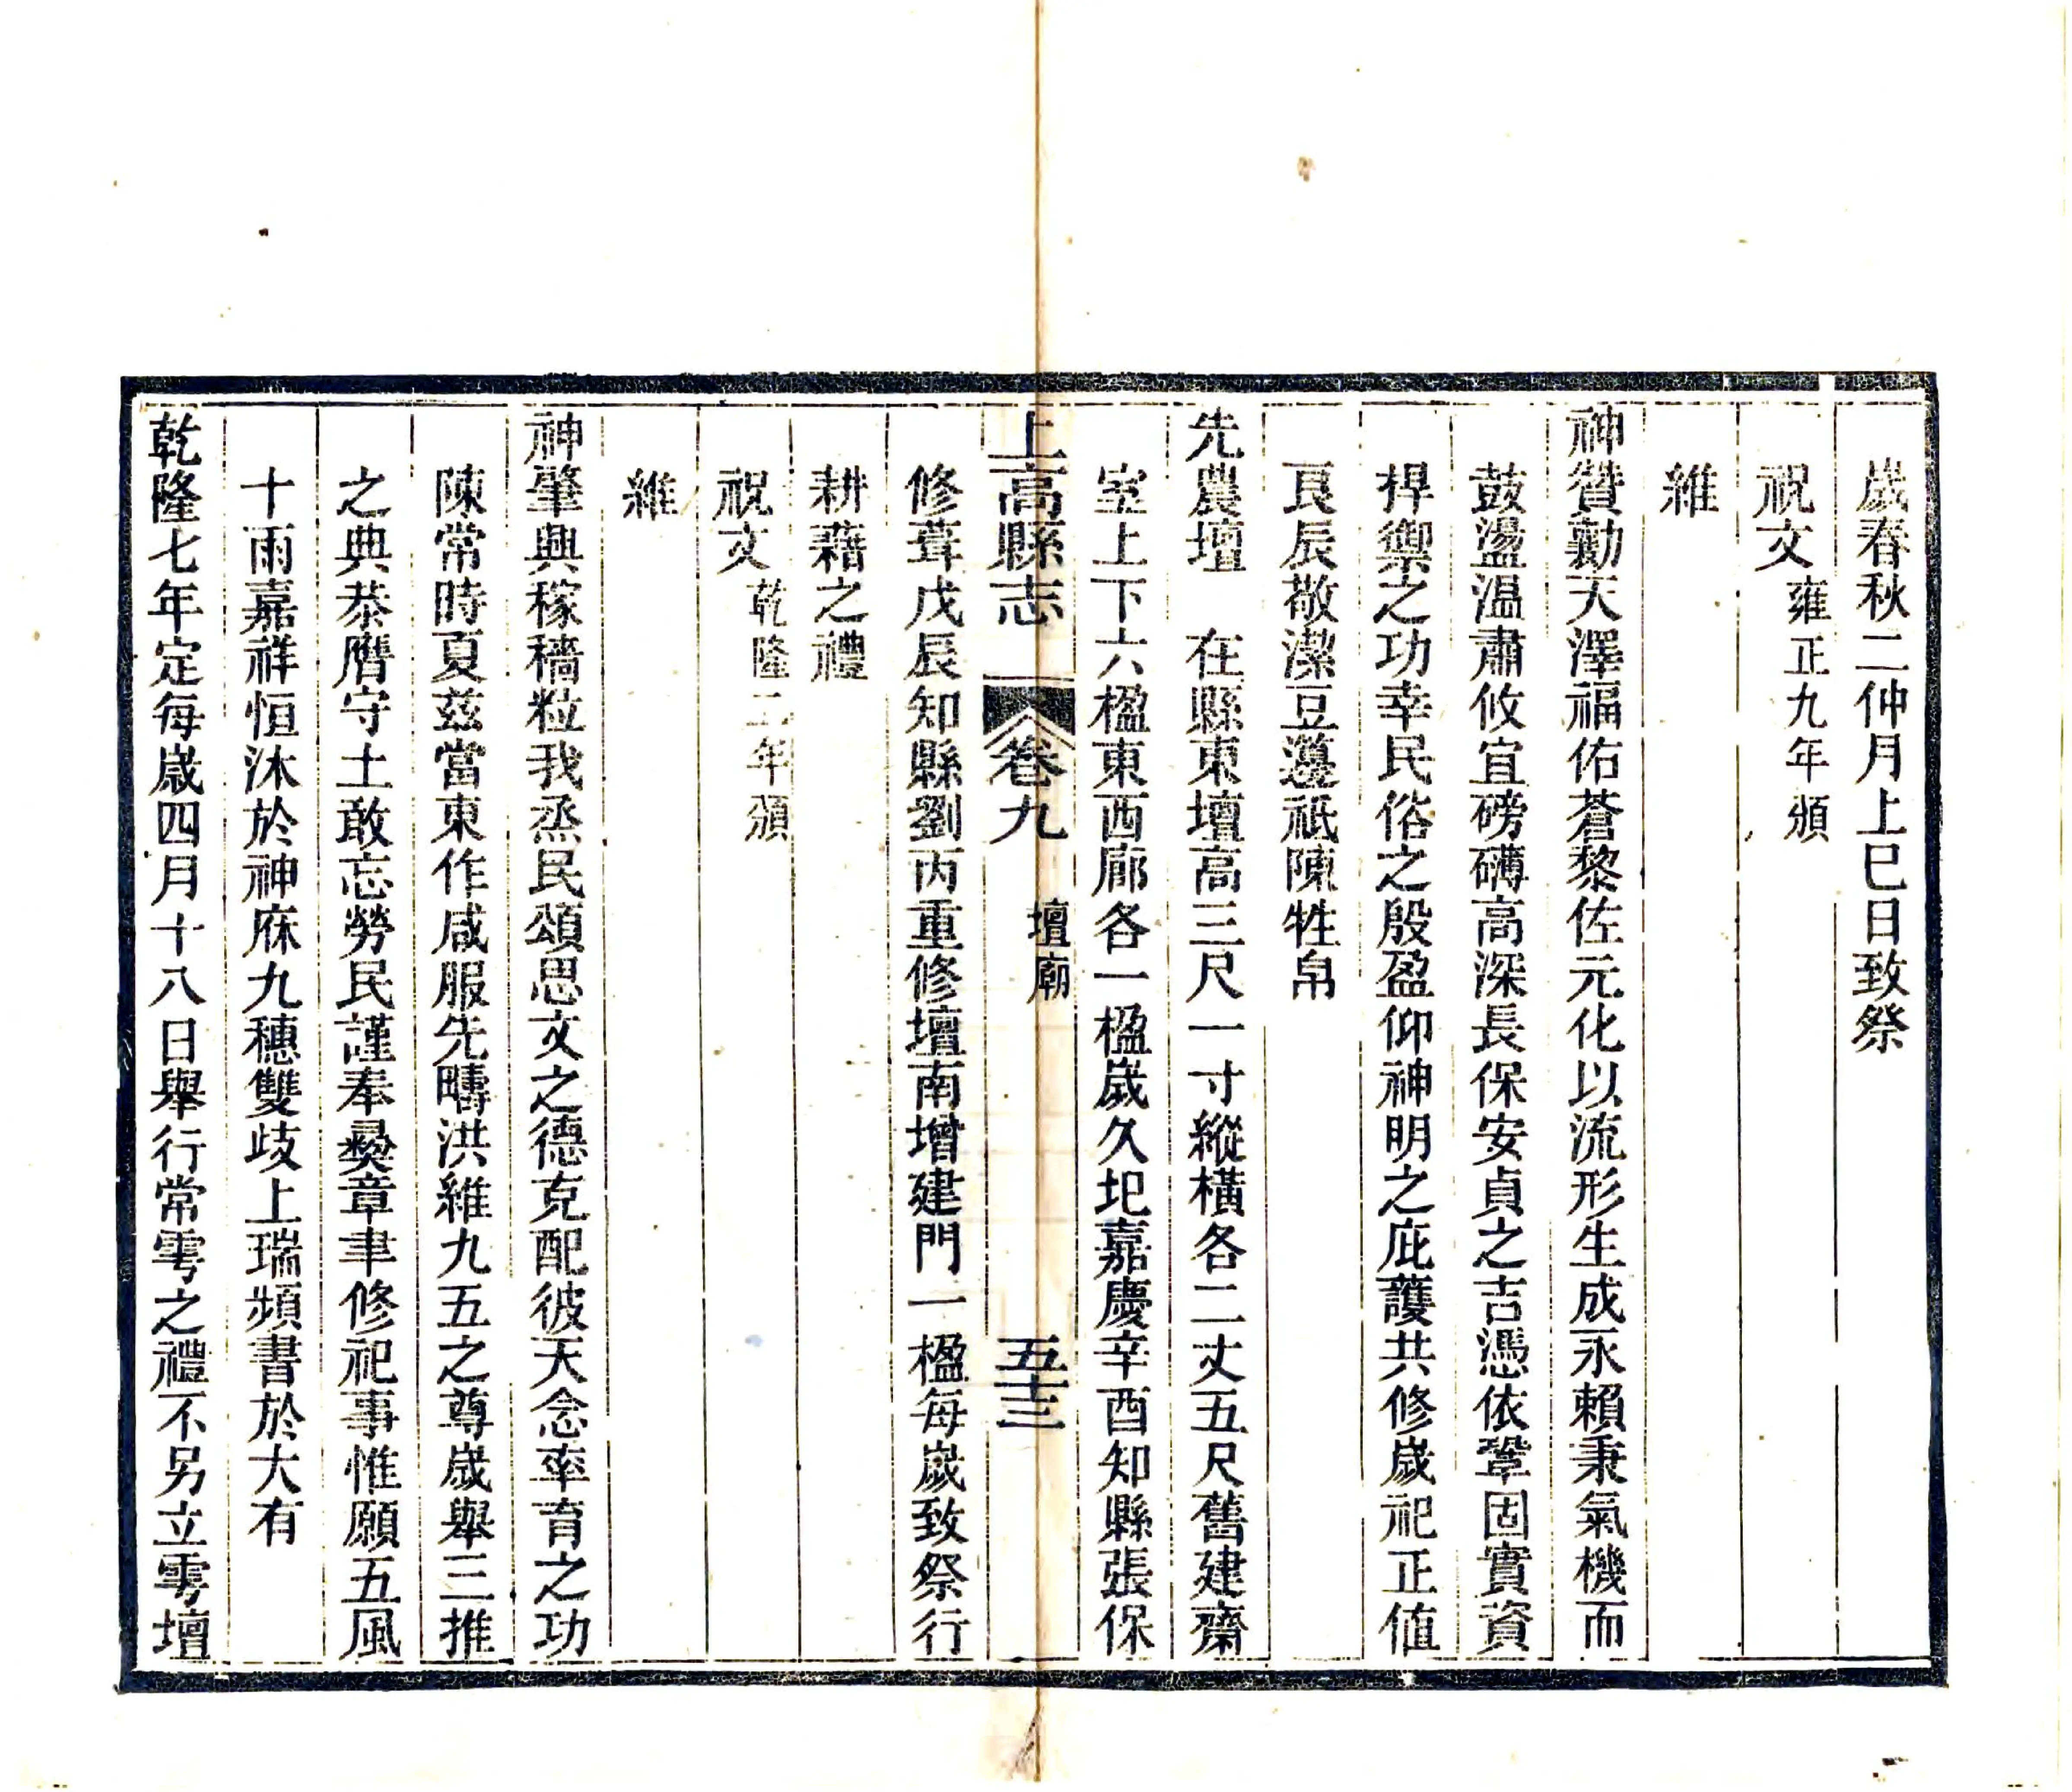 歲春秋二仲月上巳日致祭
祝文雍正九年頒
維
神贊勷天澤福佑蒼黎佐元化以流形生成永賴秉氣機而
鼓盪温肅攸宜磅礡高深長保安貞之吉憑依鞏固實資
捍禦之功幸民俗之殷盈仰神明之庇護共修歲祀正值
良辰敬潔豆籩祗陳牲帛
先農壇　在縣東壇高三尺一寸縱橫各二丈五尺舊建齋
室上下六楹東西廊各一楹歲久圮嘉慶辛酉知縣張保
上高縣志　卷九　壇廟　五十三
修葺戊辰知縣劉丙重修壇南增建門一楹每歲致祭行
耕藉之禮
祝文乾隆二年頒
維
神肇興稼穡粒我烝民頌思文之德克配彼天念率育之功
陳常時夏兹當東作咸服先疇洪維九五之尊歲舉三推
之典恭膺守土敢忘勞民謹奉彞章聿修祀事惟願五風
十雨嘉祥恒沐於神庥九穗雙歧上瑞頻書於大有
乾隆七年定每歲四月十八日舉行常雩之禮不另立雩壇